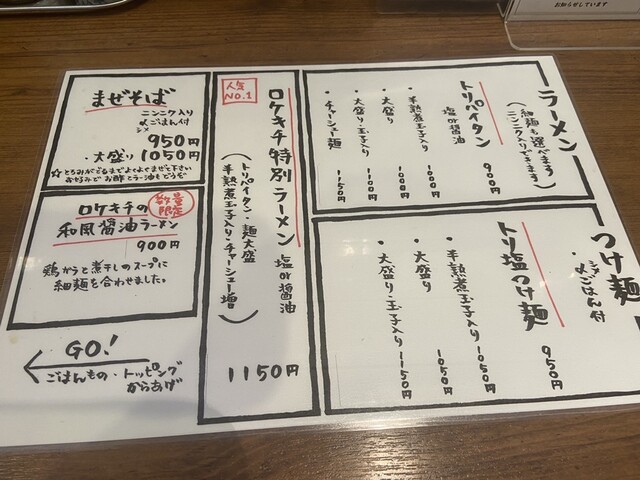 お知らせしています
ラーメン
(細麺も選べます
ニンニク入りできます)
トリパイタン
塩or醤油
900円
・半熟煮玉子入り 1000円
・大盛り 1000円
・大盛り・玉子入り 1100円
・チャーシュー麺 1150円
つけ麺
・〆ごはん付
シメ
トリ塩つけ麺
950円
・半熟煮玉子入り 1050円
・大盛り 1050円
・大盛り・玉子入り 1150円
人気
NO.1
ロケキチ特別ラーメン
塩or醤油
(トリパイタン・麺大盛
半熟煮玉子入り・チャーシュー増)
1150円
まぜそば
ニンニク入り
〆ごはん付
シメ
950円
・大盛り1050円
☆とろみがでるまでよくよくまぜて下さい
お好みでお酢とラー油もどうぞ
数量
限定
ロケキチの
和風醤油ラーメン
900円
鶏がらと煮干しのスープに
細麺を合わせました。
GO!
ごはんもの・トッピング
からあげ